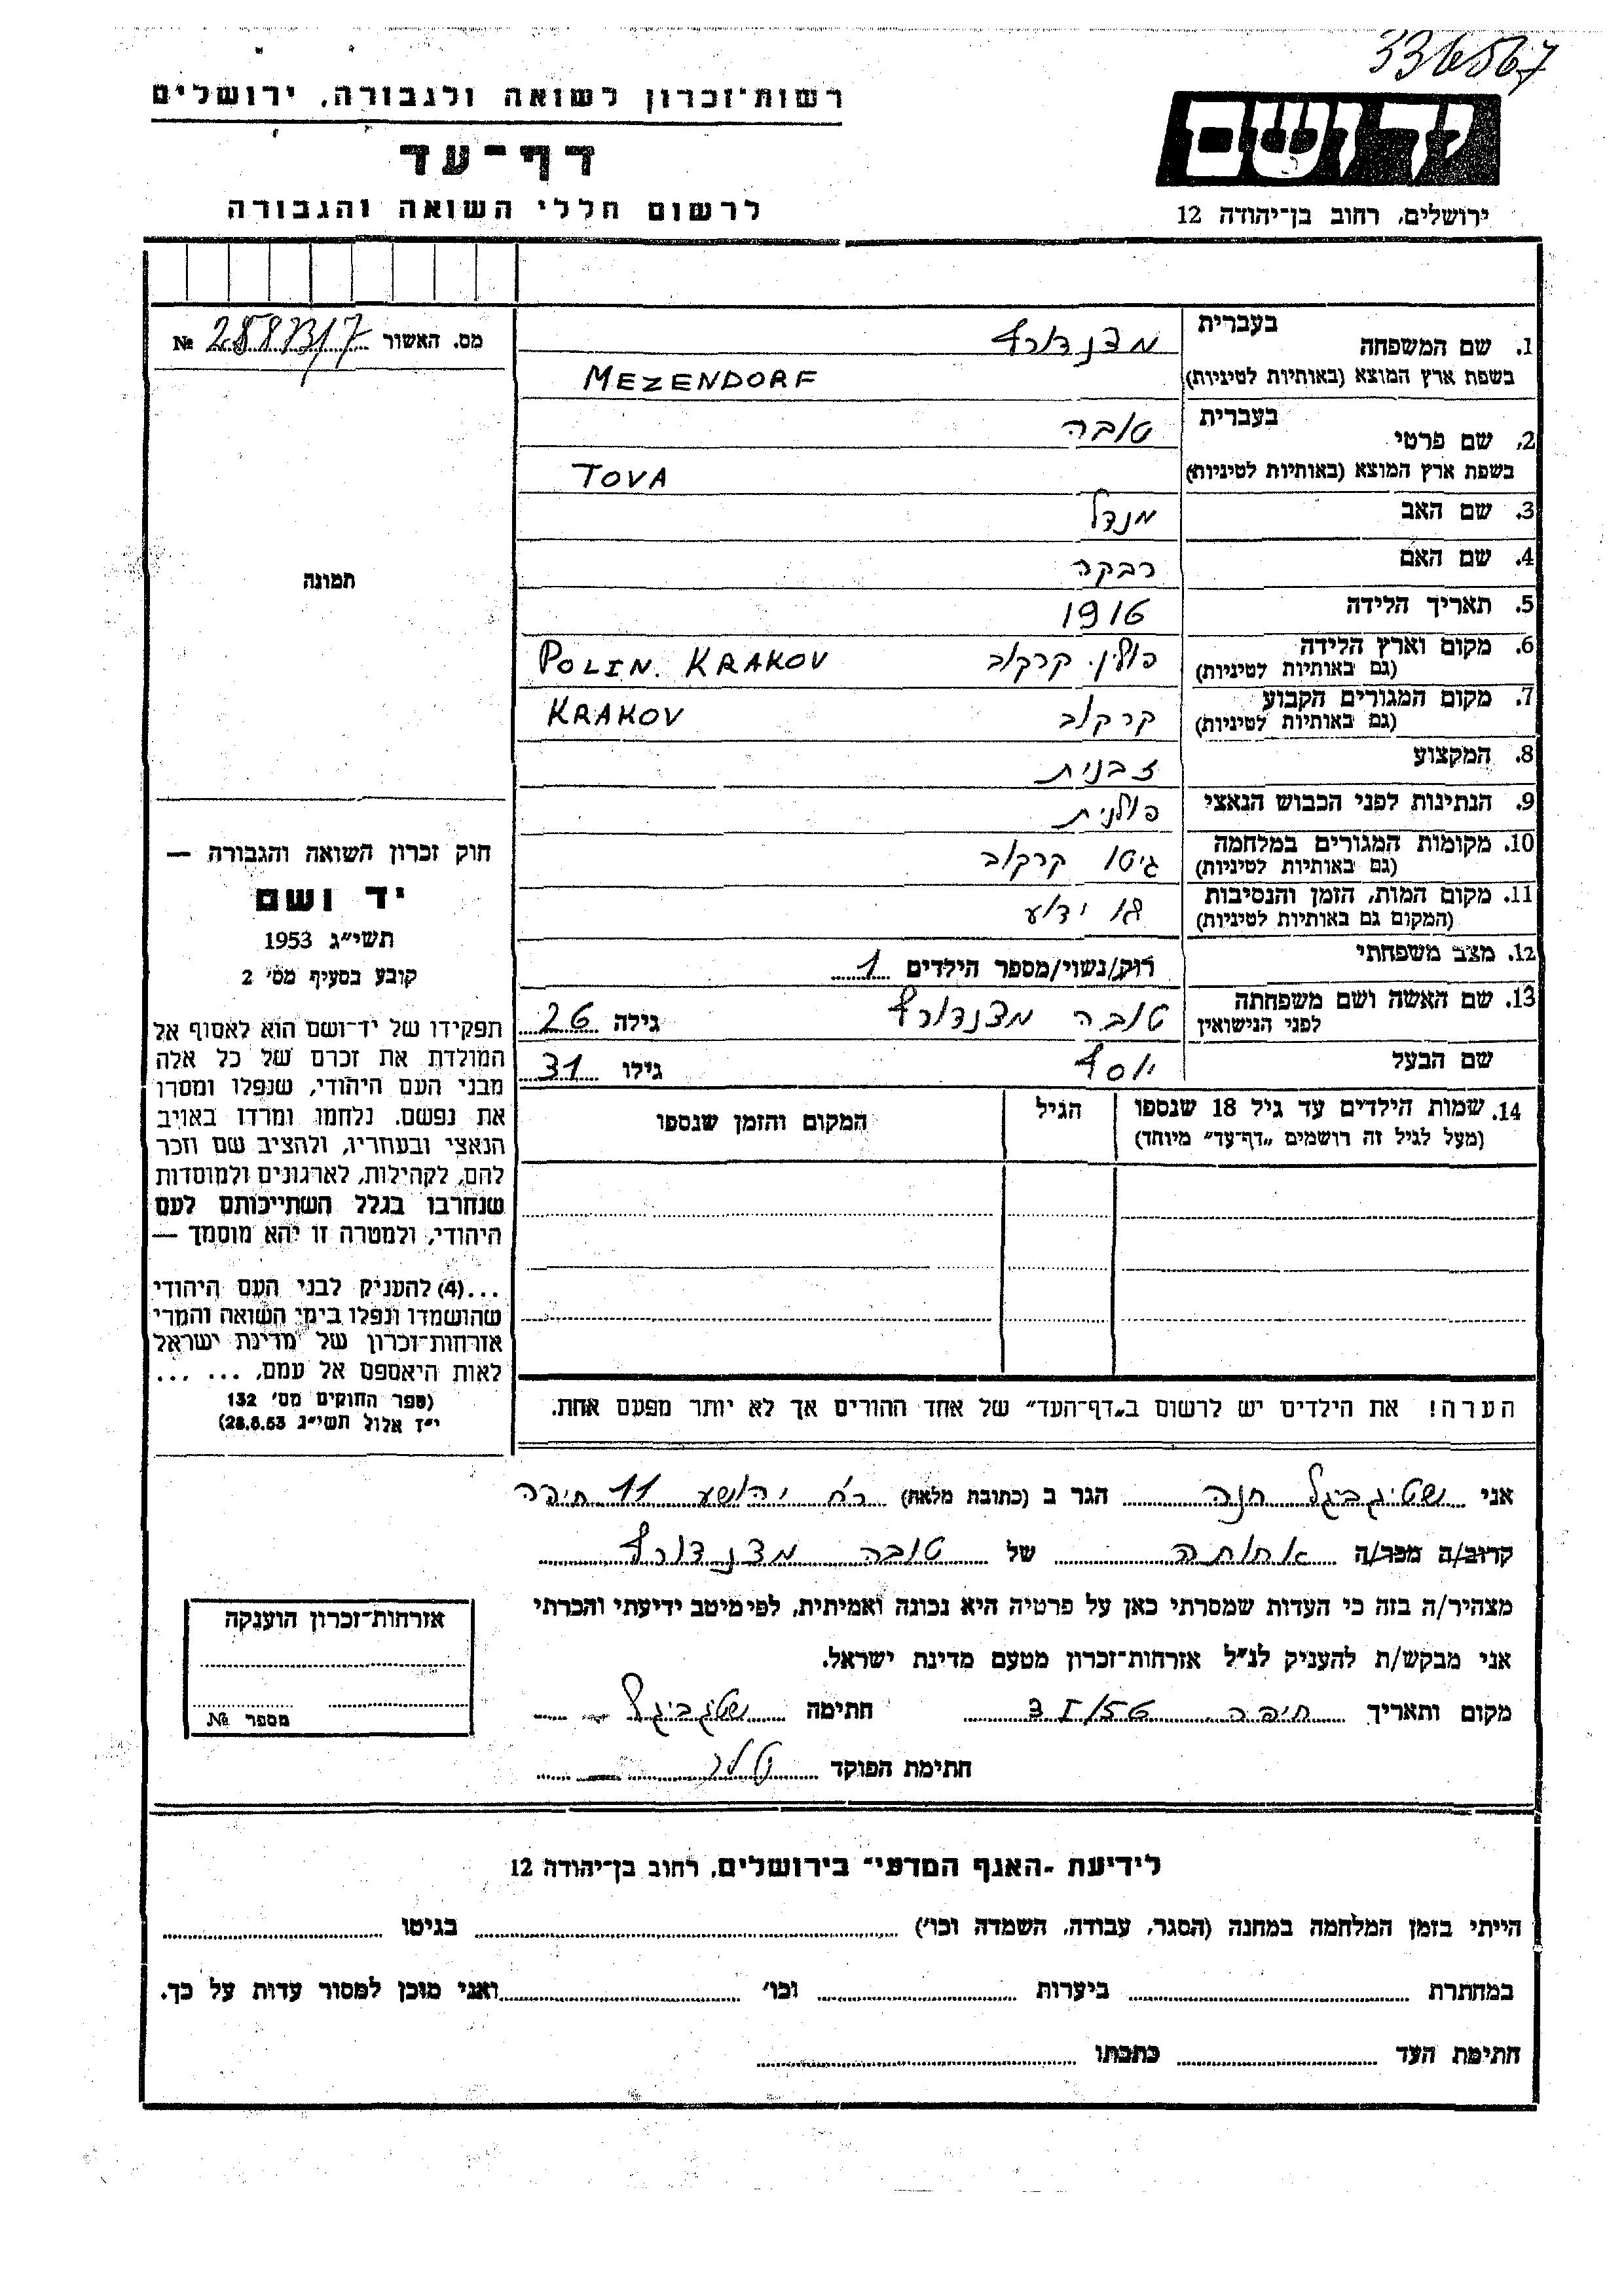 336567
רשות־זכרון לשואה ולגבורה, ירושלים
דף־עד
לרשום חללי השואה והגבורה
יד ושם
ירושלים, רחוב בן־יהודה 12
מס. האשור № 258731/7
1. שם המשפחה בעברית מצנדורף
בשפת ארץ המוצא (באותיות לטיניות) MEZENDORF
2. שם פרטי בעברית טובה
בשפת ארץ המוצא (באותיות לטיניות) TOVA
3. שם האב מנדל
4. שם האם רבקה
5. תאריך הלידה 1916
6. מקום וארץ הלידה (גם באותיות לטיניות) פולין. קרקוב POLIN. KRAKOV
7. מקום המגורים הקבוע (גם באותיות לטיניות) קרקוב KRAKOV
8. המקצוע זבנית
9. הנתינות לפני הכבוש הנאצי פולנית
10. מקומות המגורים במלחמה (גם באותיות לטיניות) גיטו קרקוב
11. מקום המות, הזמן והנסיבות (המקום גם באותיות לטיניות) לא ידוע
12. מצב משפחתי רוק/נשוי/מספר הילדים 1
13. שם האשה ושם משפחתה לפני הנישואין טובה מצנדורף גילה 26
שם הבעל יוסף גילו 31
14. שמות הילדים עד גיל 18 שנספו (מעל לגיל זה רושמים „דף־עד" מיוחד) הגיל המקום והזמן שנספו
הערה! את הילדים יש לרשום ב„דף־העד" של אחד ההורים אך לא יותר מפעם אחת.
תמונה
חוק זכרון השואה והגבורה —
יד ושם
תשי״ג 1953
קובע בסעיף מס׳ 2
תפקידו של יד־ושם הוא לאסוף אל
המולדת את זכרם של כל אלה
מבני העם היהודי, שנפלו ומסרו
את נפשם, נלחמו ומרדו באויב
הנאצי ובעוזריו, ולהציב שם וזכר
להם, לקהילות, לארגונים ולמוסדות
שנחרבו בגלל השתייכותם לעם
היהודי, ולמטרה זו יהא מוסמך —
...(4) להעניק לבני העם היהודי
שהושמדו ונפלו בימי השואה והמרי
אזרחות־זכרון של מדינת ישראל
לאות היאספם אל עמם, ... ...
(ספר החוקים מס׳ 132
י״ז אלול תשי״ג 28.8.53)
אני שטיגביגל חנה הגר ב (כתובת מלאה) רח יהושע 11 חיפה
קרוב/ה מכר/ה אחותה של טובה מצנדורף
מצהיר/ה בזה כי העדות שמסרתי כאן על פרטיה היא נכונה ואמיתית, לפי מיטב ידיעתי והכרתי
אני מבקש/ת להעניק לנ״ל אזרחות־זכרון מטעם מדינת ישראל.
מקום ותאריך חיפה 3I/56 חתימה שטגביגל
חתימת הפוקד
אזרחות־זכרון הוענקה
מספר №
לידיעת „האגף המדעי״ בירושלים, רחוב בן־יהודה 12
הייתי בזמן המלחמה במחנה (הסגר, עבודה, השמדה וכו׳) בגיטו
במחתרת ביערות וכו׳ ואני מוכן למסור עדות על כך.
חתימת העד כתבתו